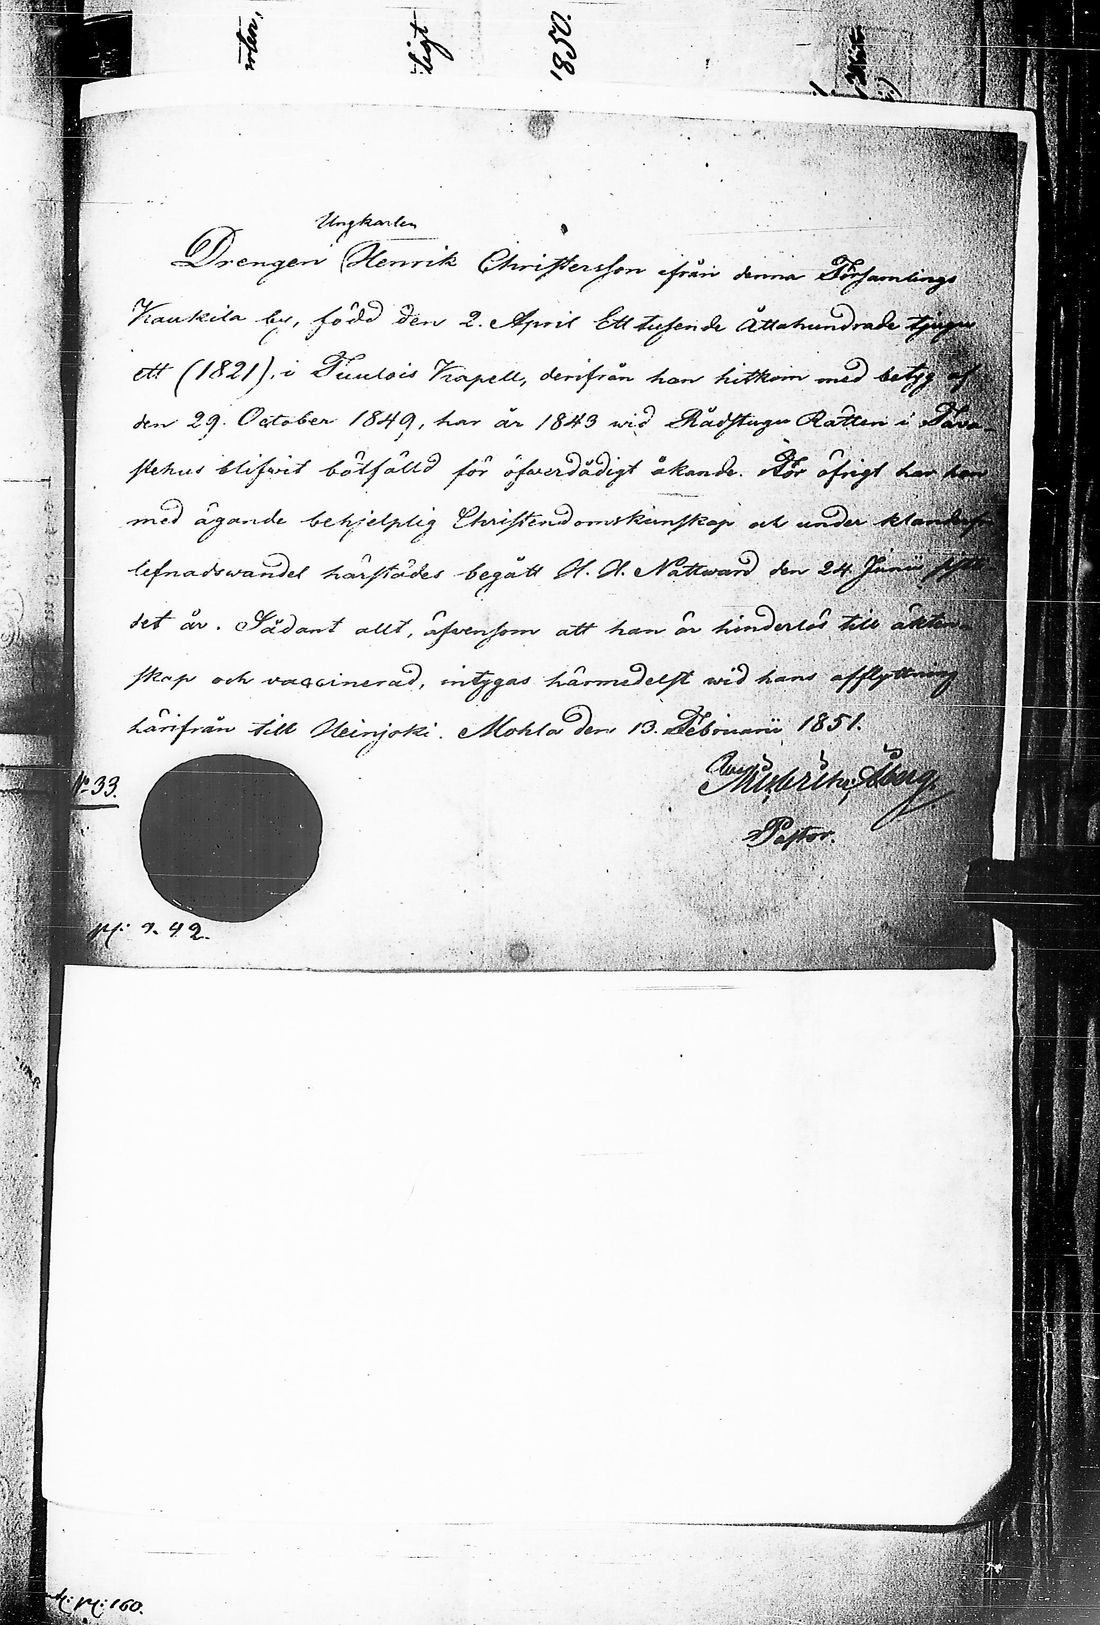 wlen,
ligt
1850.
Ungkarlen
Drengen Henrik Christersson ifrån denna Församlings
Kaukila by, född den 2. April Ett tusende Åttahundrade tjugu
ett (1821), i Tuulois Kapell, derifrån han hitkom med betyg af
den 29. October 1849, har år 1843 wid Rådstugu Rätten i Tava-
stehus blifwit bötfälld för öfwerdådigt åkande. För öfrigt har han
med ägande behjelplig Christendomskunskap och under
lefnadswandel härstädes begått H. H. Nattward den 24 Junii
det år. Sådant allt, äfwensom att han är hinderlös till äkten-
skap och vaccinerad, intygas härmedelst wid hans afflyttning
härifrån till Heinjoki. Mohla den 13. Februarii 1851.
Åberg
Pastor.
No 33.
42.
160.